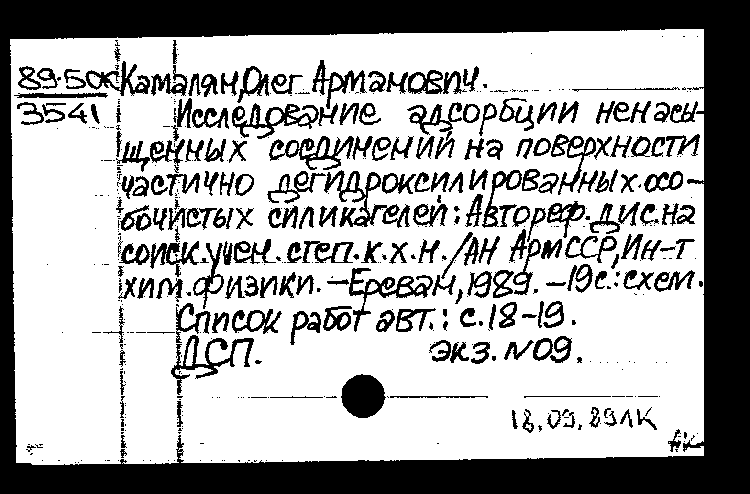 89-5ок Камалян, Олег Арманович.
3541 Исследование адсорбции ненасы-
щенных соединений на поверхности
частично дегидроксилированных осо-
бочистых силикагелей: Автореф. дис. на
соиск. учен. степ. к.х.н. /АН АрмССР, Ин-т
хим. физики. – Ереван, 1989. – 19с.: схем.
Список работ авт.: с.18-19.
ДСП. экз. №09.
18.09.89ЛК